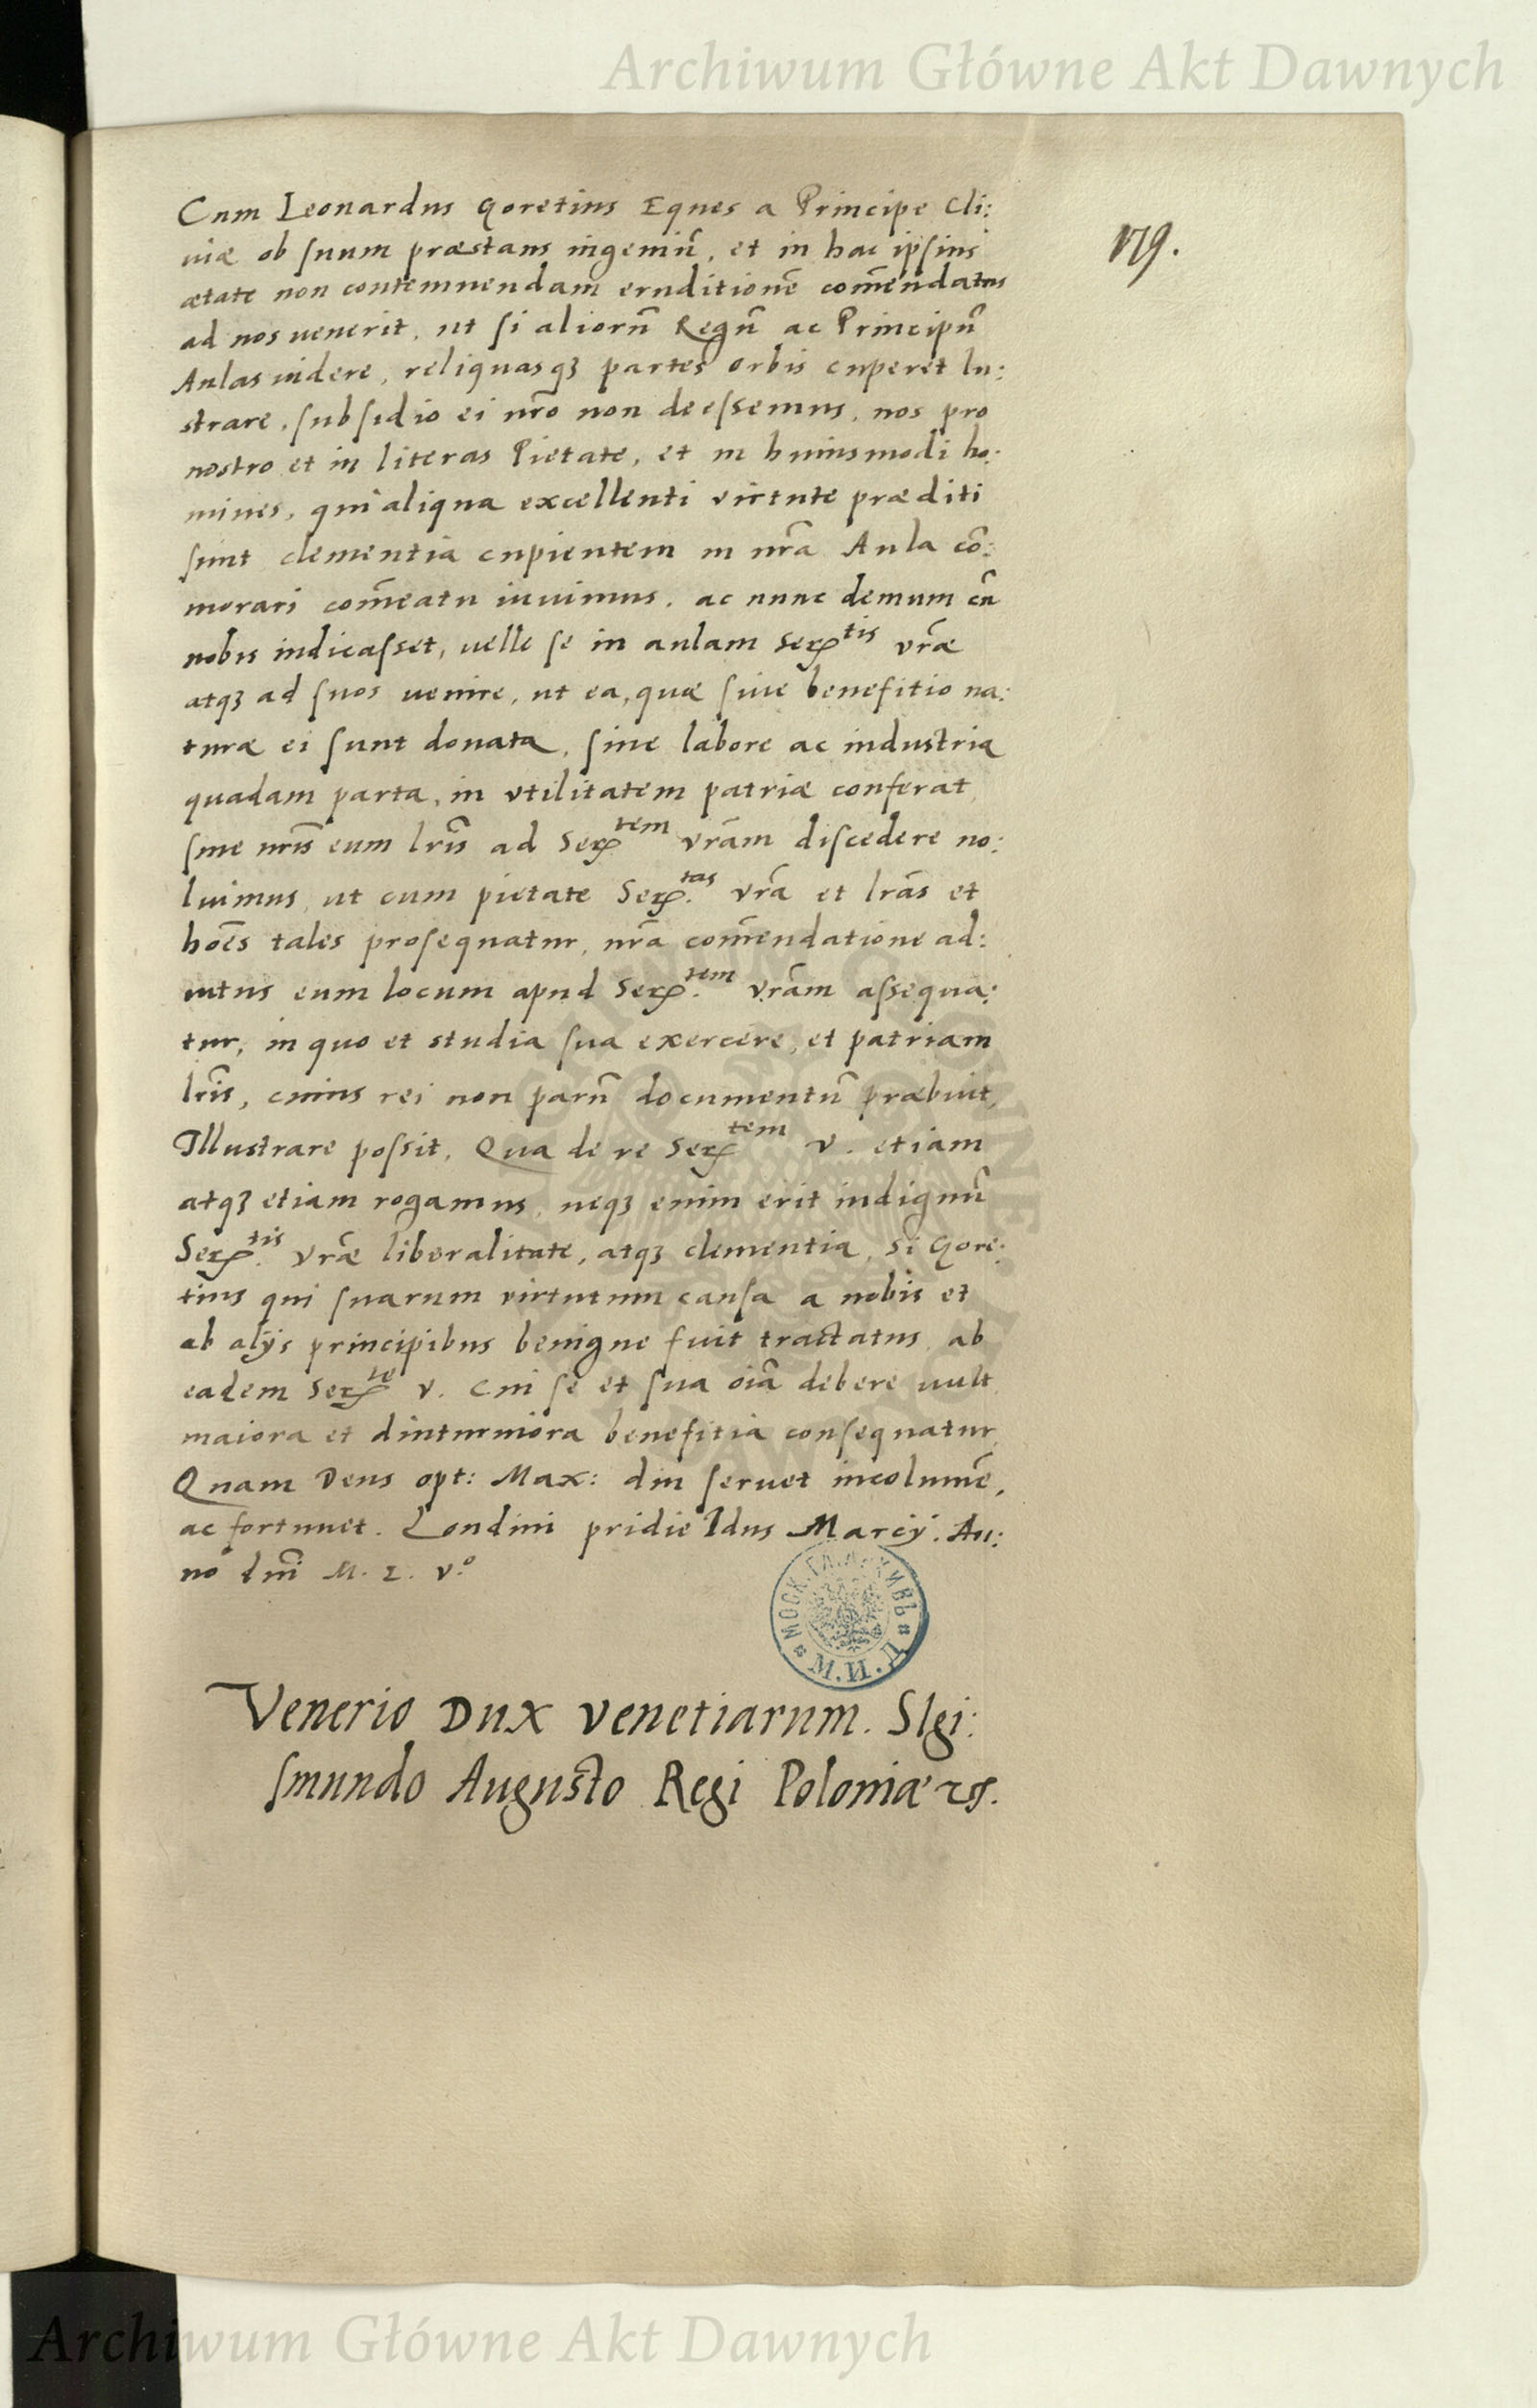 Archiwum Główne Akt Dawnych
179.
Cum Leonardus Goretius Eques a Principe Cli:
viæ ob suum præstans ingeniũ, et in hac ipsius
ætate non contemnendam eruditionẽ com̃endatus
ad nos uenerit, ut si aliorũ Regũ ac Principũ
Aulas uidere, reliquasqꝫ partes orbis cuperet lu:
strare, subsidio ei nr̃o non deessemus, nos pro
nostro et in literas Pietate, et in huiusmodi ho:
mines, qui aliqua excellenti virtute præditi
sunt clementia cupientem in nr̃a Aula cõ:
morari com̃eatu iuuimus. ac nunc demum cũ
nobis indicasset, uelle se in aulam Serᵗⁱˢ vr̃æ
atqꝫ ad suos uenire, ut ea, quæ siue benefitio na:
turæ ei sunt donata, siue labore ac industria
quadam parta, in vtilitatem patriæ conferat,
sine nr̃is eum lr̃is ad Serᵗᵉᵐ vr̃am discedere no:
luimus, ut cum pietate Ser.ᵗᵃˢ vr̃a et lr̃as et
hoẽs tales prosequatur, nr̃a com̃endatione ad:
iutus eum locum apud Ser.ᵗᵉᵐ vr̃am assequa:
tur, in quo et studia sua exercere, et patriam
lr̃is, cuius rei non parũ documentũ præbuit,
Illustrare possit. Qua de re Serᵗᵉᵐ v. etiam
atqꝫ etiam rogamus, neqꝫ enim erit indignũ
Ser.ᵗⁱˢ vr̃æ liberalitate, atqꝫ clementia, si Gore:
tius qui suarum virtutum causa a nobis et
ab alijs principibus benigne fuit tractatus, ab
eadem Serᵗᵉ v. cui se et sua oĩa debere uult
maiora et diuturniora benefitia consequatur,
Quam Deus opt: Max: diu seruet incolumẽ,
ac fortunet. Londini pridie Idus Marcij. An:
no dñi M. L. v.º
МОСК. ГЛ. АРХИВЪ
М.И.Д.
Venerio Dux Venetiarum. Sigi:
smundo Augusto Regi Poloniæ ꝛc.
Archiwum Główne Akt Dawnych